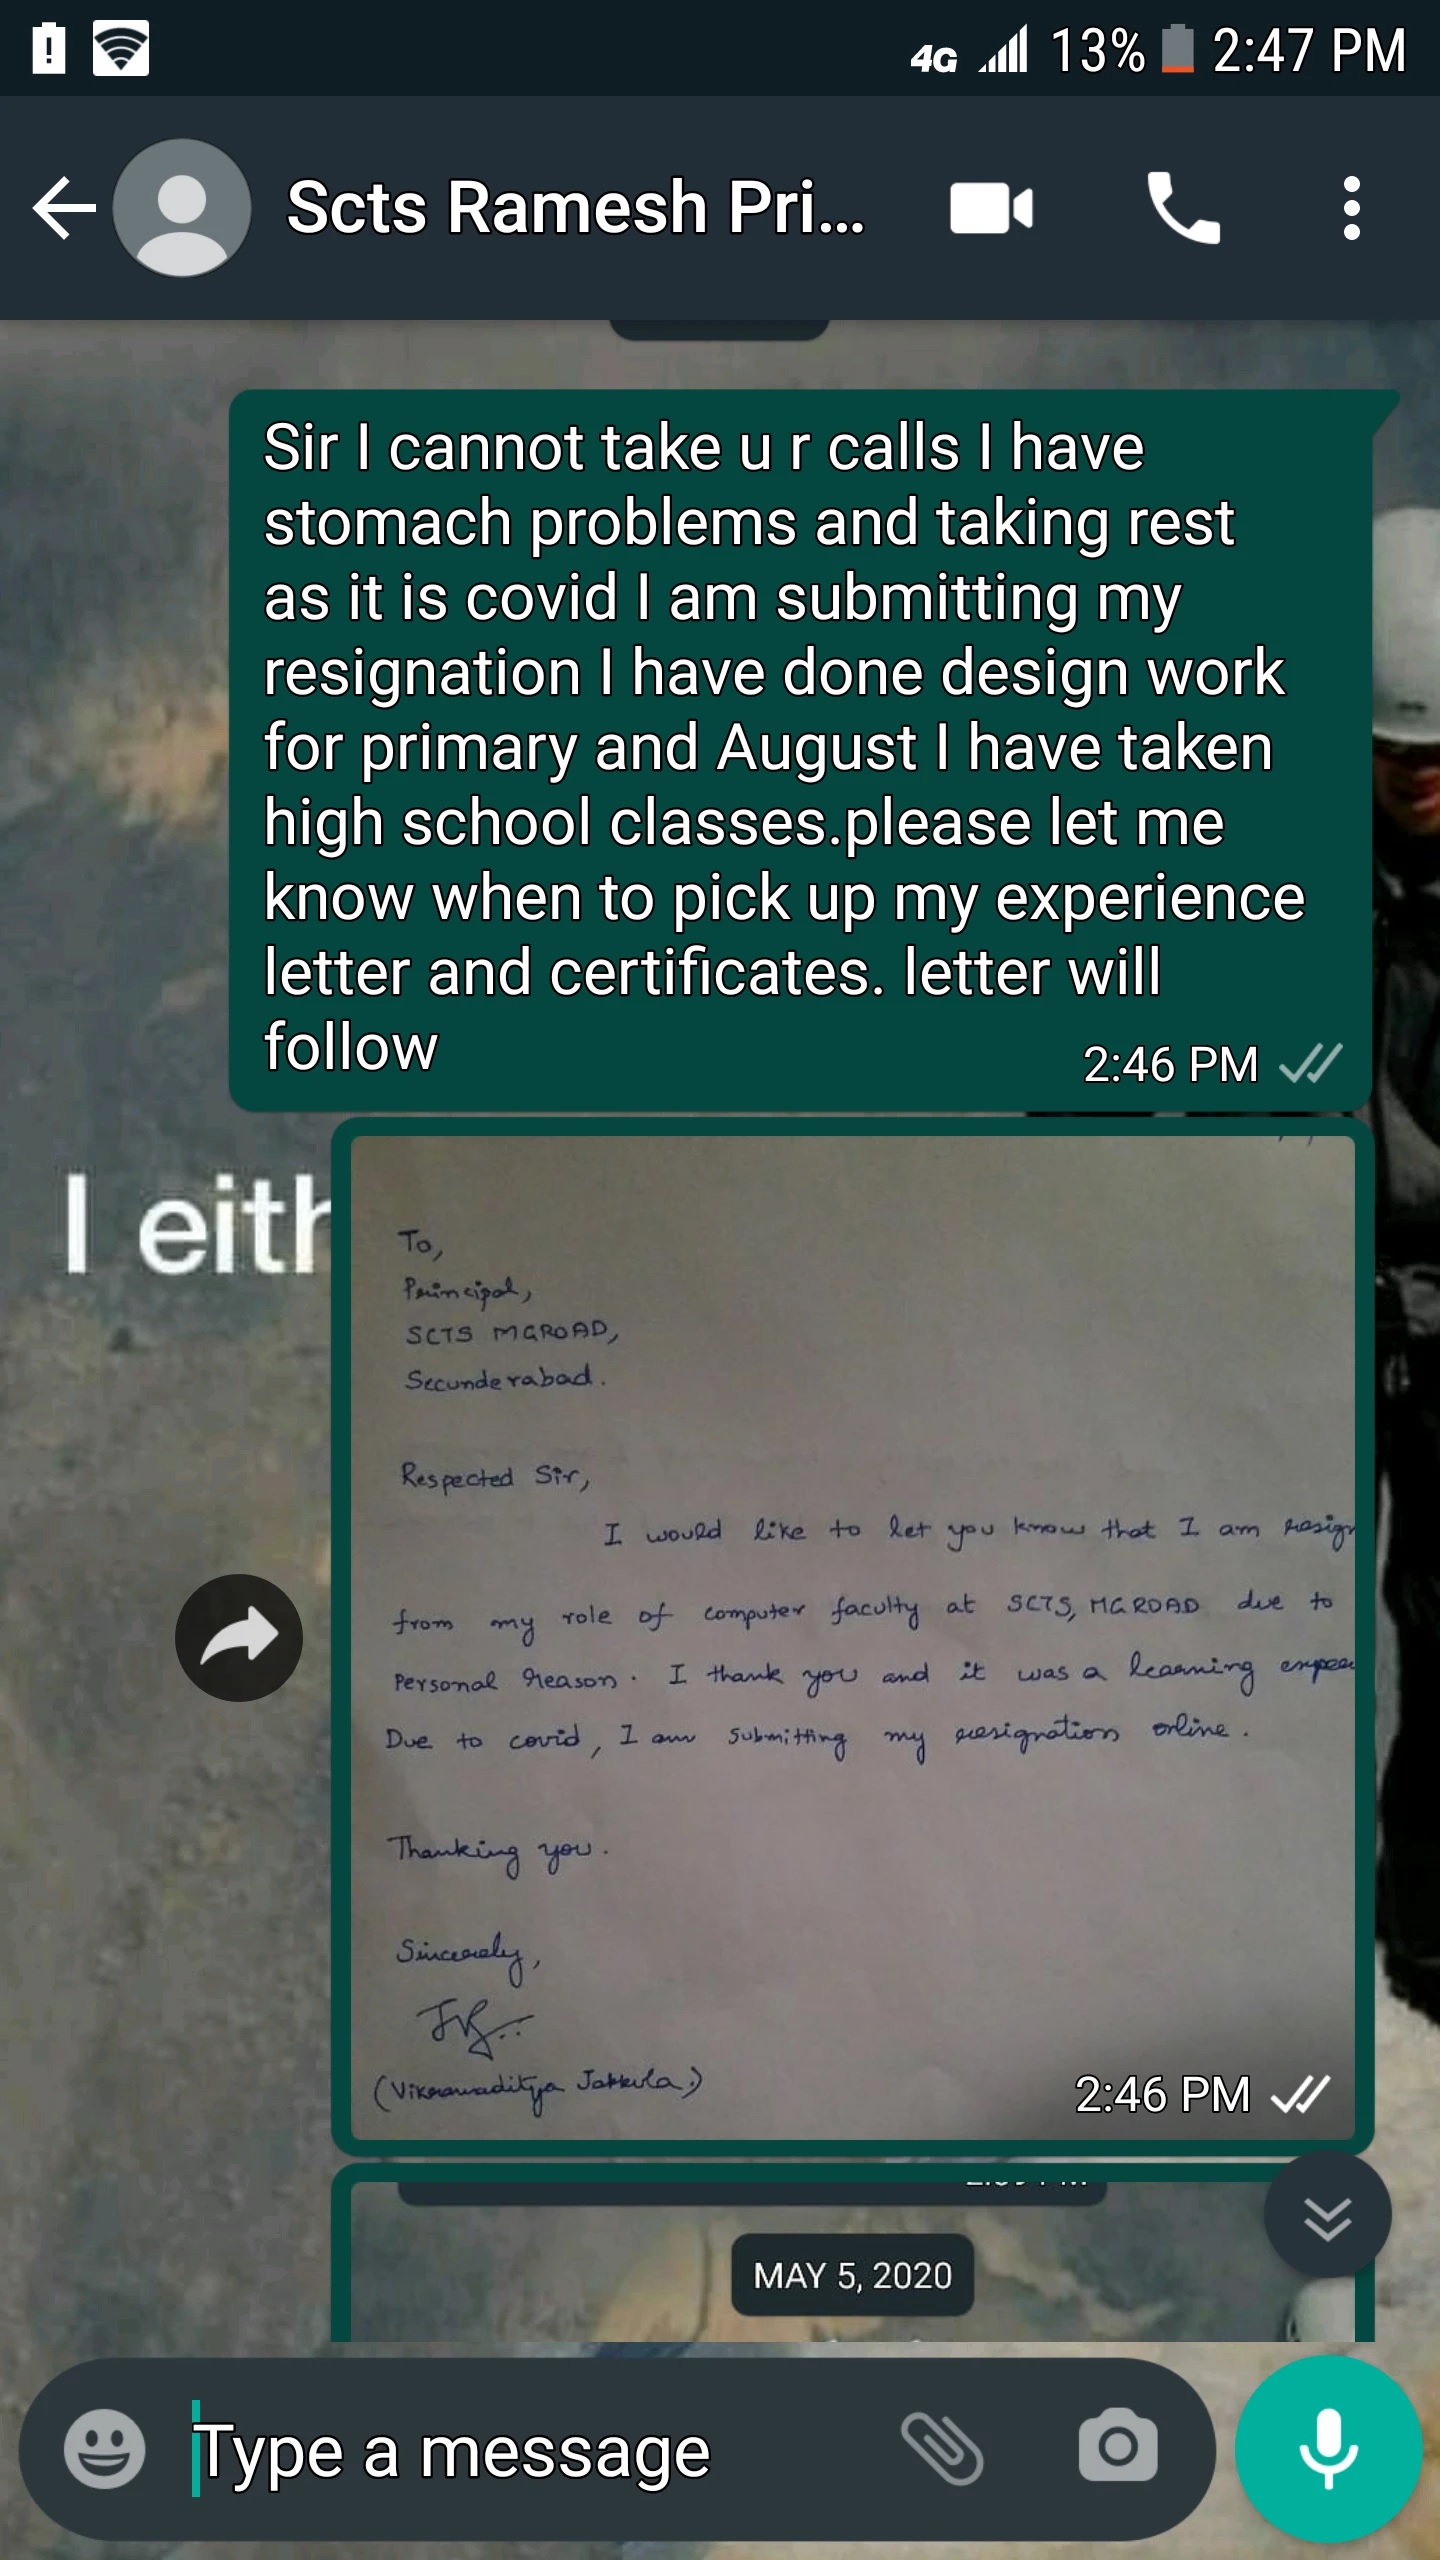 4G 13% 2:47 PM
Scts Ramesh Pri...
Sir I cannot take u r calls I have
stomach problems and taking rest
as it is covid I am submitting my
resignation I have done design work
for primary and August I have taken
high school classes.please let me
know when to pick up my experience
letter and certificates. letter will
follow
2:46 PM
I eith
To,
Principal,
SCTS MGROAD,
Secunderabad.
Respected Sir,
I would like to let you know that I am resign
from my role of computer faculty at SCTS, MGROAD due to
Personal reason. I thank you and it was a learning exper
Due to covid, I am submitting my resignation online.
Thanking you.
Sincerely,
(Vikramaditya Jakkula.)
2:46 PM
MAY 5, 2020
Type a message